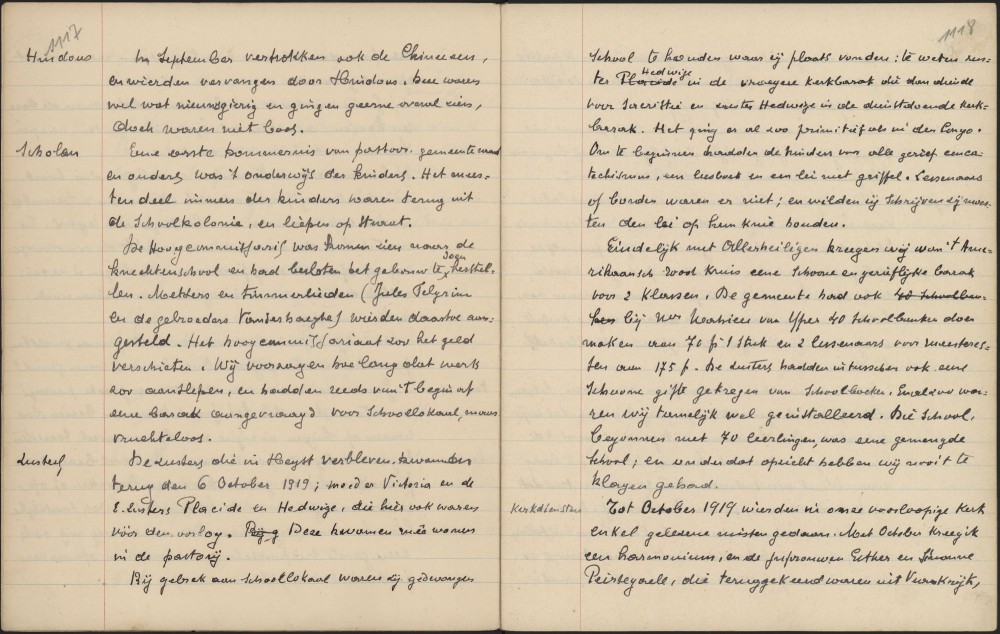 1117
Hindous In September vertrokken ook de Chineezen,
en wierden vervangen door Hindous. Deze waren
wel wat nieuwsgierig en gingen geerne overal zien,
doch waren niet boos.
Scholen Eene eerste bekommernis van pastoor, gemeenteraad
en ouders was 't onderwijs der kinders. Het mees-
tendeel immers der kinders waren terug uit
de Schoolkolonie, en liepen op straat.
De Hoogcommissaris was komen zien naar de
knechtenschool en had besloten het gebouw te doen herstel-
len. Metsers en timmerlieden (Jules Pelgrim
en de gebroeders Vanderhaeghe) wierden daartoe aan-
gesteld. Het hoogcommissariaat zou het geld
verschieten. Wij voorzagen hoe lang dat werk
zou aansleepen, en hadden reeds van 't begin af
eene barak aangevraagd voor Schoollokaal, maar
vruchteloos.
Zusters De Zusters die in Heyst verbleven, kwamen
terug den 6 October 1919; moeder Victoria en de
E. Zusters Placide en Hedwige, die hier ook waren
vóór den oorlog. Deze kwamen meê wonen
in de pastorij.
Bij gebrek aan Schoollokaal waren zij gedwongen
1118
School te houden waar zij plaats vonden: te weten zus-
ter Placide Hedwige in de vroegere kerkbarak die dan diende
voor Sacristie en zuster Hedwige in de dienstdoende kerk-
barak. Het ging er al zoo primitief als in den Congo.
Om te beginnen hadden de kinders voor alle gerief een ca-
techismus, een leesboek en een lei met griffel. Lessenaars
of borden waren er niet; en wilden zij schrijven zij moes-
ten den lei op hun knie houden.
Eindelijk met Allerheiligen kregen wij van 't Ame-
rikaansch rood kruis eene schoone en gerieflijke barak
voor 2 klassen. De gemeente had ook 40 Schoolban-
ken bij van Yper 40 Schoolbanken doen
maken aan 70 fr 't stuk en 2 lessenaars voor meesteres-
sen aan 175 f. De zusters hadden intusschen ook eene
schoone gifte gekregen van Schoolboeken, zoodat wa-
ren wij temelijk wel geïnstalleerd. Die School,
begonnen met 70 leerlingen, was eene gemengde
School; en onder dat opzicht hebben wij nooit te
klagen gehad.
Kerkdiensten Tot October 1919 wierden in onze voorloopige kerk
enkel gelezene missen gedaan. Met October kreeg ik
een harmonium, en de juffrouwen Esther en
die teruggekeerd waren uit Vrankrijk,